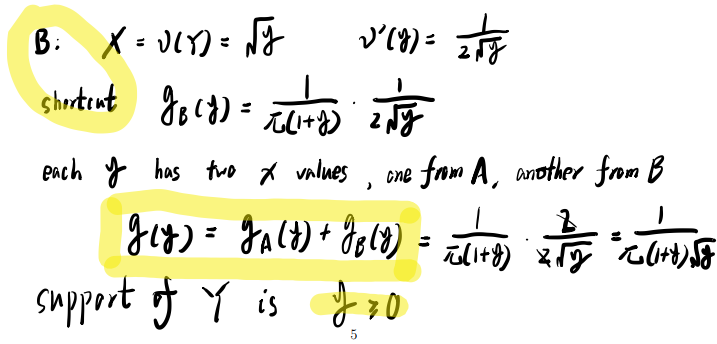 B: X = υ(Y) = √y υ'(y) = 1/(2√y)
shortcut g_B(y) = 1/(π(1+y)) · 1/(2√y)
each y has two x values, one from A, another from B
g(y) = g_A(y) + g_B(y) = 1/(π(1+y)) · 2/(2√y) = 1/(π(1+y)√y)
support of Y is y ≥ 0
5